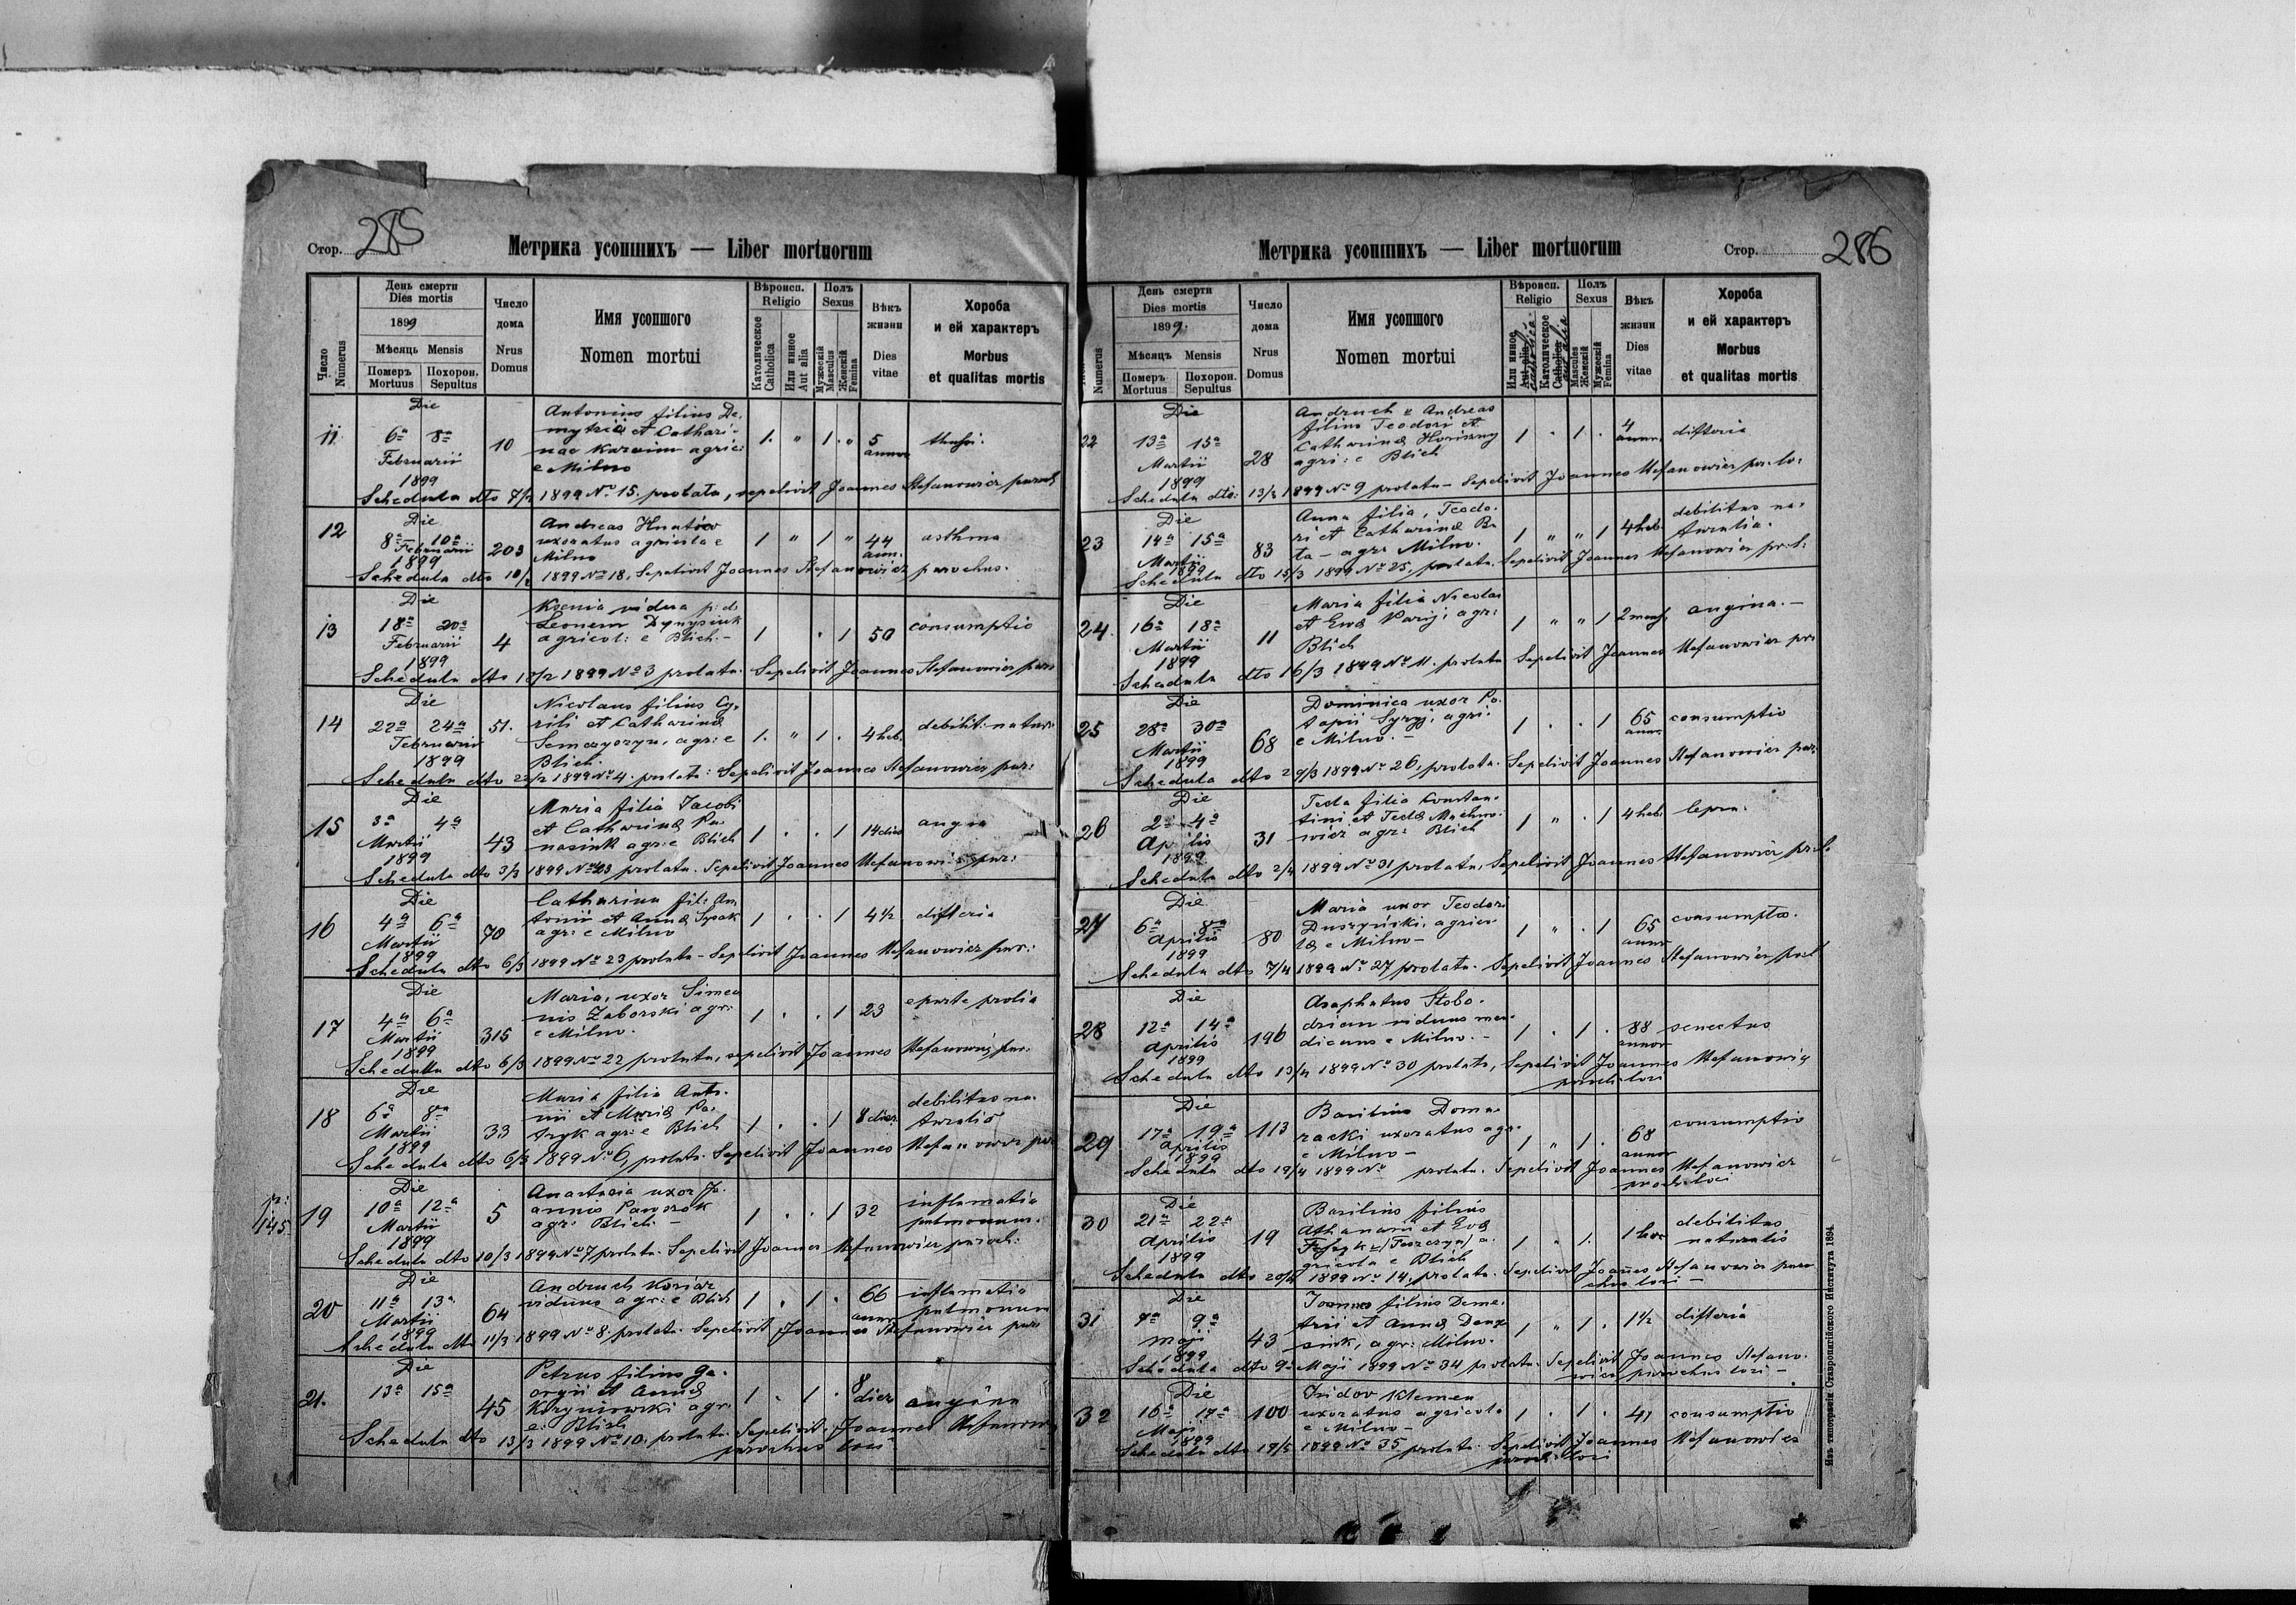 Стор. 285
Метрика усопшихъ — Liber mortuorum
Число Numerus
День смерти
Dies mortis
1899
Мѣсяць Mensis
Померъ Mortuus
Похорон. Sepultus
Число дома
Nrus Domus
Имя усопшого
Nomen mortui
Вѣроисп.
Religio
Католическое Catholica
Или инное Aut alia
Полъ
Sexus
Мужескій Masculus
Женскій Femina
Вѣкъ жизни
Dies vitae
Хороба
и ей характеръ
Morbus
et qualitas mortis
11 Die 6ª 8ª Februarii 1899 10
Antonius filius De-
mytrii et Cathari-
nae agric:
e Milno
1. " 1. " 5 annor
Schedula dto 7/2 1899 No 15. prolata, sepelivit Joannes Stefanowicz paroch
12 Die 8ª 10ª Februarii 1899 203
Andreas
uxoratus agricola e
Milno
1 " 1 " 44 ann. asthma
Schedula dto 10/2 1899 No 18. Sepelivit Joannes Stefanowicz parochus.
13 Die 18ª 20ª Februarii 1899 4
Ksenia vidua p: d:
Leonem Dynysiuk
agricol: e Blich. -
1 . 1 50 consumptio
Schedula dto 1899 No 3 prolata. Sepelivit Joannes Stefanowicz par:
14 Die 22ª 24ª Februarii 1899 51.
Nicolaus filius Cy-
rili et Catharinae
agr: e
Blich.
1. " 1. . 4 heb. debilit: natur:
Schedula dto 1899 No 4. prolata: Sepelivit Joannes Stefanowicz par:
15 Die 3ª 4ª Martii 1899 43
Maria filia Jacobi
et Catharinae Pa-
nasiuk agr: e Blich
1 . . 1 14 dies angina
Schedula dto 3/3 1899 No prolata. Sepelivit Joannes Stefanowicz par:
16 Die 4ª 6ª Martii 1899 70
Catharina fil: An-
tonii et Annae Sysak
agr: e Milno
1 . . 1 4 1/2 difteria
Schedula dto 6/3 1899 No 23 prolata - Sepelivit Joannes Stefanowicz par:
17 Die 4ª 6ª Martii 1899 315
Maria, uxor Simeo-
nis Zaborski agr:
e Milno.
1 . . 1 23 e parte prolis
Schedula dto 6/3 1899 No 22 prolata, sepelivit Joannes Stefanowicz par:
18 Die 6ª 8va Martii 1899 33
Maria filia Anto-
nii et Mariae Pa-
tryk agr: e Blich
1 . . 1 8 dies debilitas na-
turalis
Schedula dto 6/3 1899 No 6, prolata. Sepelivit Joannes Stefanowicz par
p: 145
19 Die 10ª 12ª Martii 1899 5
Anastasia uxor Jo-
annis
agr: Blich. -
1 . . 1 32 inflamatio
pulmonum.
Schedula dto 10/3 1899 No 7 prolata. Sepelivit Joannes Stefanowicz paroch:
20 Die 11ª 13ª Martii 1899 64
Andruch Kosiar
viduus agr: e Blich
1 . 1 . 66 annor inflamatio
pulmonum
Schedula dto 11/3 1899 No 8, prolata. Sepelivit Joannes Stefanowicz par:
21. Die 13ª 15ª 45
Petrus filius Ge-
orgii et Annae
agr:
e: Blich
1 . 1 . 8 dies angina
Schedula dto 13/3 1899 No 10. prolata. Sepelivit Joannes Stefanowicz
parochus loci
Стор. 286
Метрика усопшихъ — Liber mortuorum
Numerus
День смерти
Dies mortis
1899.
Мѣсяцъ Mensis
Померъ Mortuus
Похорон. Sepultus
Число дома
Nrus Domus
Имя усопшого
Nomen mortui
Вѣроисп.
Religio
Или инное Aut alia catholica
Католическое Catholica aut alia
Полъ
Sexus
Masculus Женскій
Мужескій Femina
Вѣкъ жизни
Dies vitae
Хороба
и ей характеръ
Morbus
et qualitas mortis
22 Die 13ª 15ª Martii 1899 28
Andruch v Andreas
filius Teodori et
Catharinae
agri: e Blich
1 . 1 . 4 annor. difteria
Schedula dto: 13/3 1899 No 9 prolata - Sepelivit Joannes Stefanowicz par: lo:
23 Die 14ª 15ª Martii 1899 83
Anna filia, Teodo-
ri et Catharinae Ba
ta - agr: Milno.
1 " " 1 4 heb. debilitas na-
turalis.
Schedula dto 15/3 1899 No 25, prolata. Sepelivit Joannes Stefanowicz par. l:
24. Die 16ª 18ª Martii 1899 11
Maria filia Nicolai
et Evae Parij, agr:
Blich
1 " " 1 2 mens. angina. -
Schedula dto 16/3 1899 No 11. prolata Sepelivit Joannes Stefanowicz par:
25 Die 28ª 30ª Martii 1899 68
Dominica uxor Po-
tapii Syryj, agri:
e Milno. -
1 . . 1 65 annor consumptio
Schedula dto 29/3 1899 No 26, prolata. Sepelivit Joannes Stefanowicz par:
26 Die 2ª 4ª Aprilis 1899 31
Tecla filia Constan-
tini et Teclae Machno-
wicz agr: Blich
1 " . 1 4 heb. lepra.
Schedula dto 2/4 1899 No 31 prolata, Sepelivit Joannes Stefanowicz par. l.
27 Die 6ª 8va Aprilis 1899 80
Maria uxor Teodori
Duszyński, agrico-
lae e Milno -
1 " . 1 65 annor consumptio.
Schedula dto 7/4 1899 No 27 prolata. Sepelivit Joannes Stefanowicz par. l
28 Die 12ª 14ª Aprilis 1899 196
Asaphatus Slobo-
dzian viduus men-
dicans e Milno. -
1 . 1 . 88 annor senectus
Schedula dto 13/4 1899 No 30 prolata, Sepelivit Joannes Stefanowicz
paroch: loci
29 Die 17ª 19ª Aprilis 1899 113
Basilius Doma-
racki uxoratus agr:
e Milno -
1 " 1 . 68 annor consumptio
Schedula dto 19/4 1899 No prolata. Sepelivit Joannes Stefanowicz
paroch: loci
30 Die 21ª 22ª Aprilis 1899 19
Basilius filius
Athanasii et Evae
/Teszczyn/ a-
gricola e Blich
1 " 1. 1 hor debilitas
naturalis
Schedula dto 1899 No 14, prolata. Sepelivit Joannes Stefanowicz paro-
chus loci -
31 Die 9ª Maji 1899 43
Joannes filius Deme-
trii et Annae
agr: Milno.
1 " 1 . 1 1/2 difteria
Schedula dto 9. Maji 1899 No 34 prolata. Sepelivit Joannes Stefano-
wicz parochus loci -
32 Die 16ª 17ª Maji 1899 100
Isidor Klemen
uxoratus agricola
e Milno -
1 . 1 . 41 consumptio
Schedula dto 17/5 1899 No 35 prolata. Sepelivit Joannes Stefanowicz
paroch: loci
Изъ типографіи Ставропигійского Института 1894.